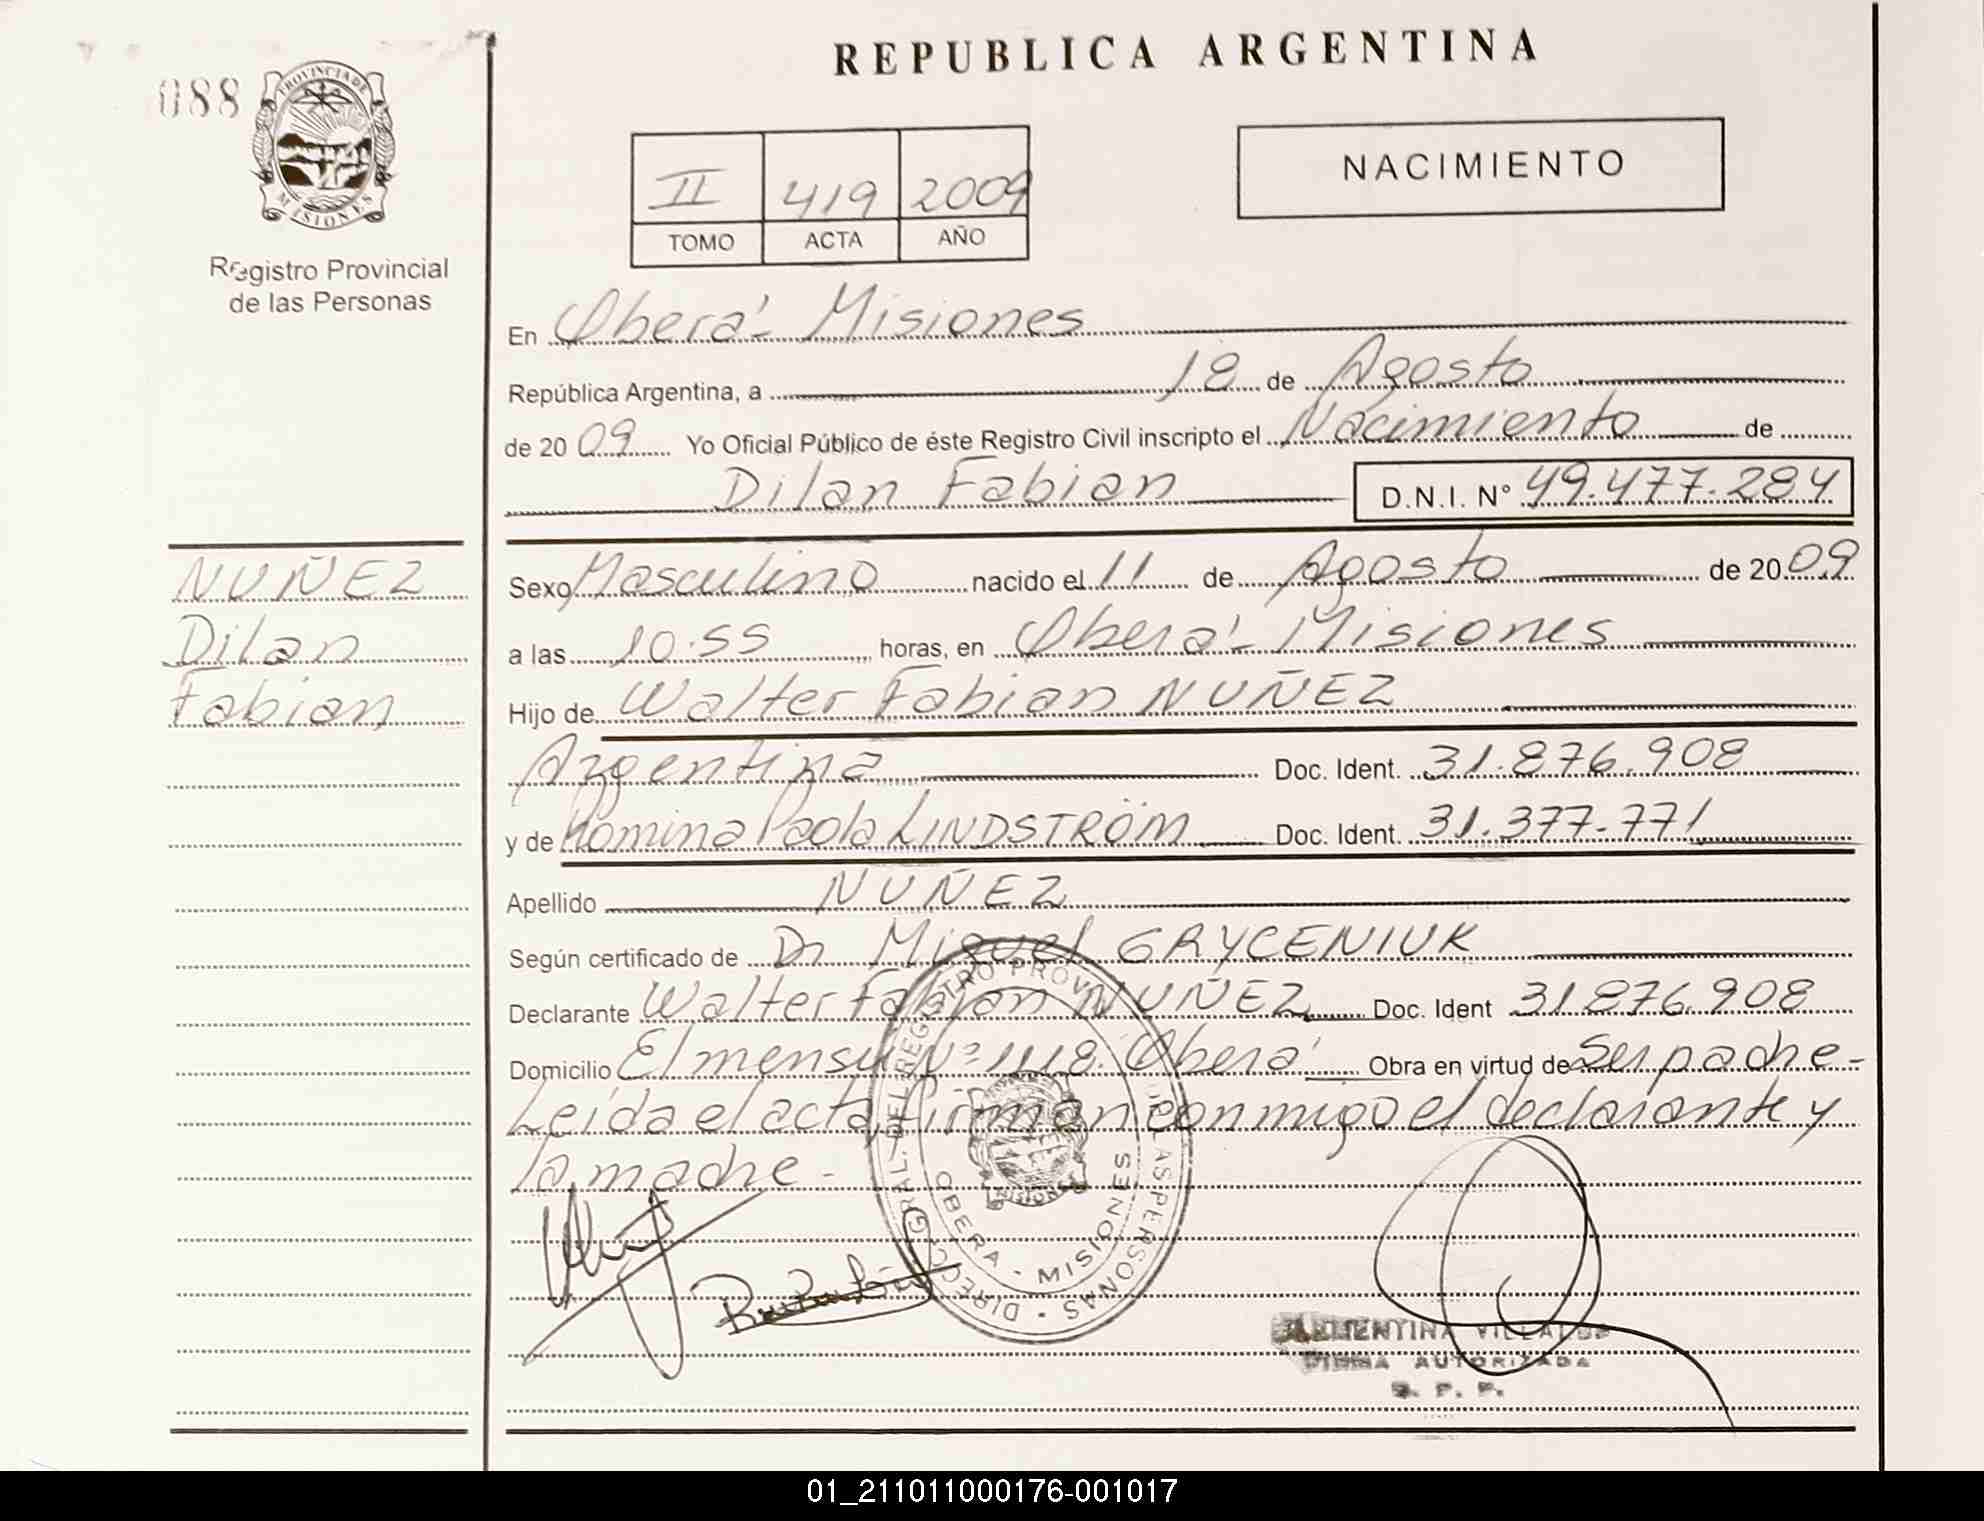 REPUBLICA ARGENTINA
088
PROVINCIA DE
MISIONES
Registro Provincial
de las Personas
NACIMIENTO
II 419 2009
TOMO ACTA AÑO
En Oberá - Misiones
República Argentina, a 18 de Agosto
de 20 09 Yo Oficial Público de éste Registro Civil inscripto el Nacimiento de
Dilan Fabian D.N.I. N° 49.477.284
NUÑEZ
Dilan
Fabian
Sexo Masculino nacido el 11 de Agosto de 20 09
a las 10.55 horas, en Oberá - Misiones
Hijo de Walter Fabian NUÑEZ
Argentina Doc. Ident. 31.876.908
y de Romina Paola LINDSTRÖM Doc. Ident. 31.377.771
Apellido NUÑEZ
Según certificado de Dr Miguel GRYCENIUK
Declarante Walter Fabian NUÑEZ Doc. Ident 31.876.908
Domicilio El mensu N° 1118. Oberá Obra en virtud de Ser padre -
Leída el acta, firman conmigo el declarante y
la madre -
DIRECC. GRAL. DEL REGISTRO PROV. DE LAS PERSONAS
OBERA - MISIONES
MISIONES
CLEMENTINA VILLALBA
FIRMA AUTORIZADA
R. P. P.
01_211011000176-001017